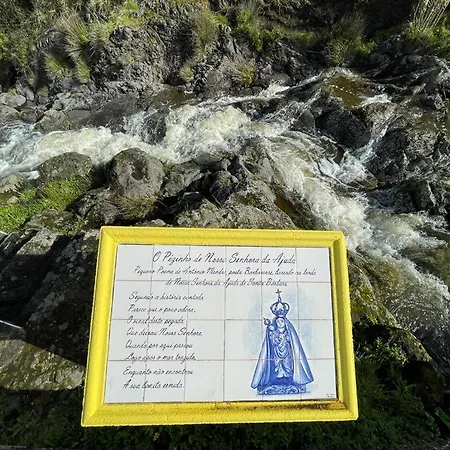 O Pezinho de Nossa Senhora da Ajuda
Pequeno Poema de António Mendes, poeta Barbarense, baseado na lenda
de Nossa Senhora da Ajuda de Santa Bárbara
Segundo a história contada
Parece que o povo adora
O sinal desta pegada
Que deixou Nossa Senhora.
Quando por aqui passou
Logo após o mar
Enquanto não encontrou
A sua bonita ermida